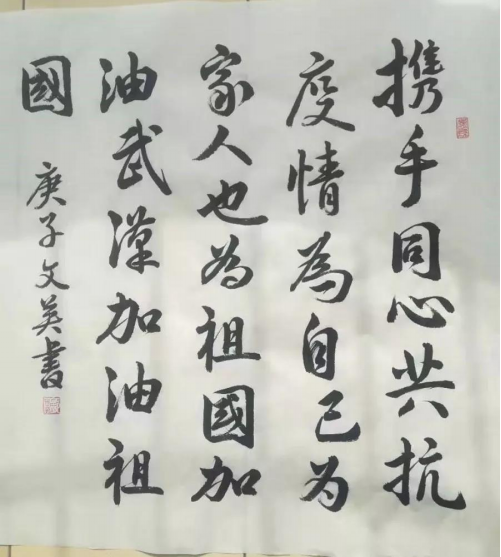 携手同心共抗
疫情為自己为
家人也為祖國加
油武漢加油祖
國
庚子文英書